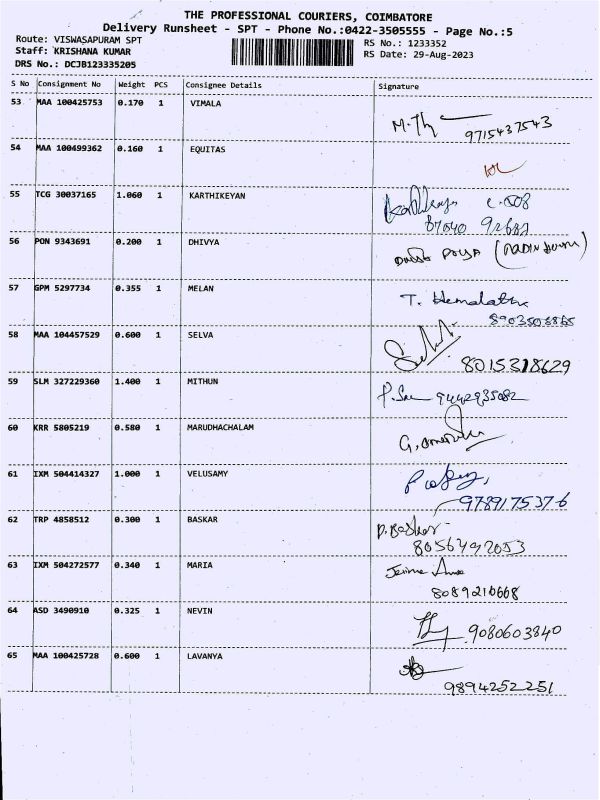 THE PROFESSIONAL COURIERS, COIMBATORE
Delivery Runsheet - SPT - Phone No.:0422-3505555 - Page No.:5
Route: VISWASAPURAM SPT
RS No.: 1233352
Staff: KRISHANA KUMAR
RS Date: 29-Aug-2023
DRS No.: DCJB123335205
S No Consignment No Weight PCS Consignee Details Signature
53 MAA 100425753 0.170 1 VIMALA
9715437543
54 MAA 100499362 0.160 1 EQUITAS
55 TCG 30037165 1.060 1 KARTHIKEYAN
56 PON 9343691 0.200 1 DHIVYA
57 GPM 5297734 0.355 1 MELAN
T. Hemalatha
58 MAA 104457529 0.600 1 SELVA
8015318629
59 SLM 327229360 1.400 1 MITHUN
9442935082
60 KRR 5805219 0.580 1 MARUDHACHALAM
61 IXM 504414327 1.000 1 VELUSAMY
9789175376
62 TRP 4858512 0.300 1 BASKAR
63 IXM 504272577 0.340 1 MARIA
8089210668
64 ASD 3490910 0.325 1 NEVIN
9080603840
65 MAA 100425728 0.600 1 LAVANYA
9894252251